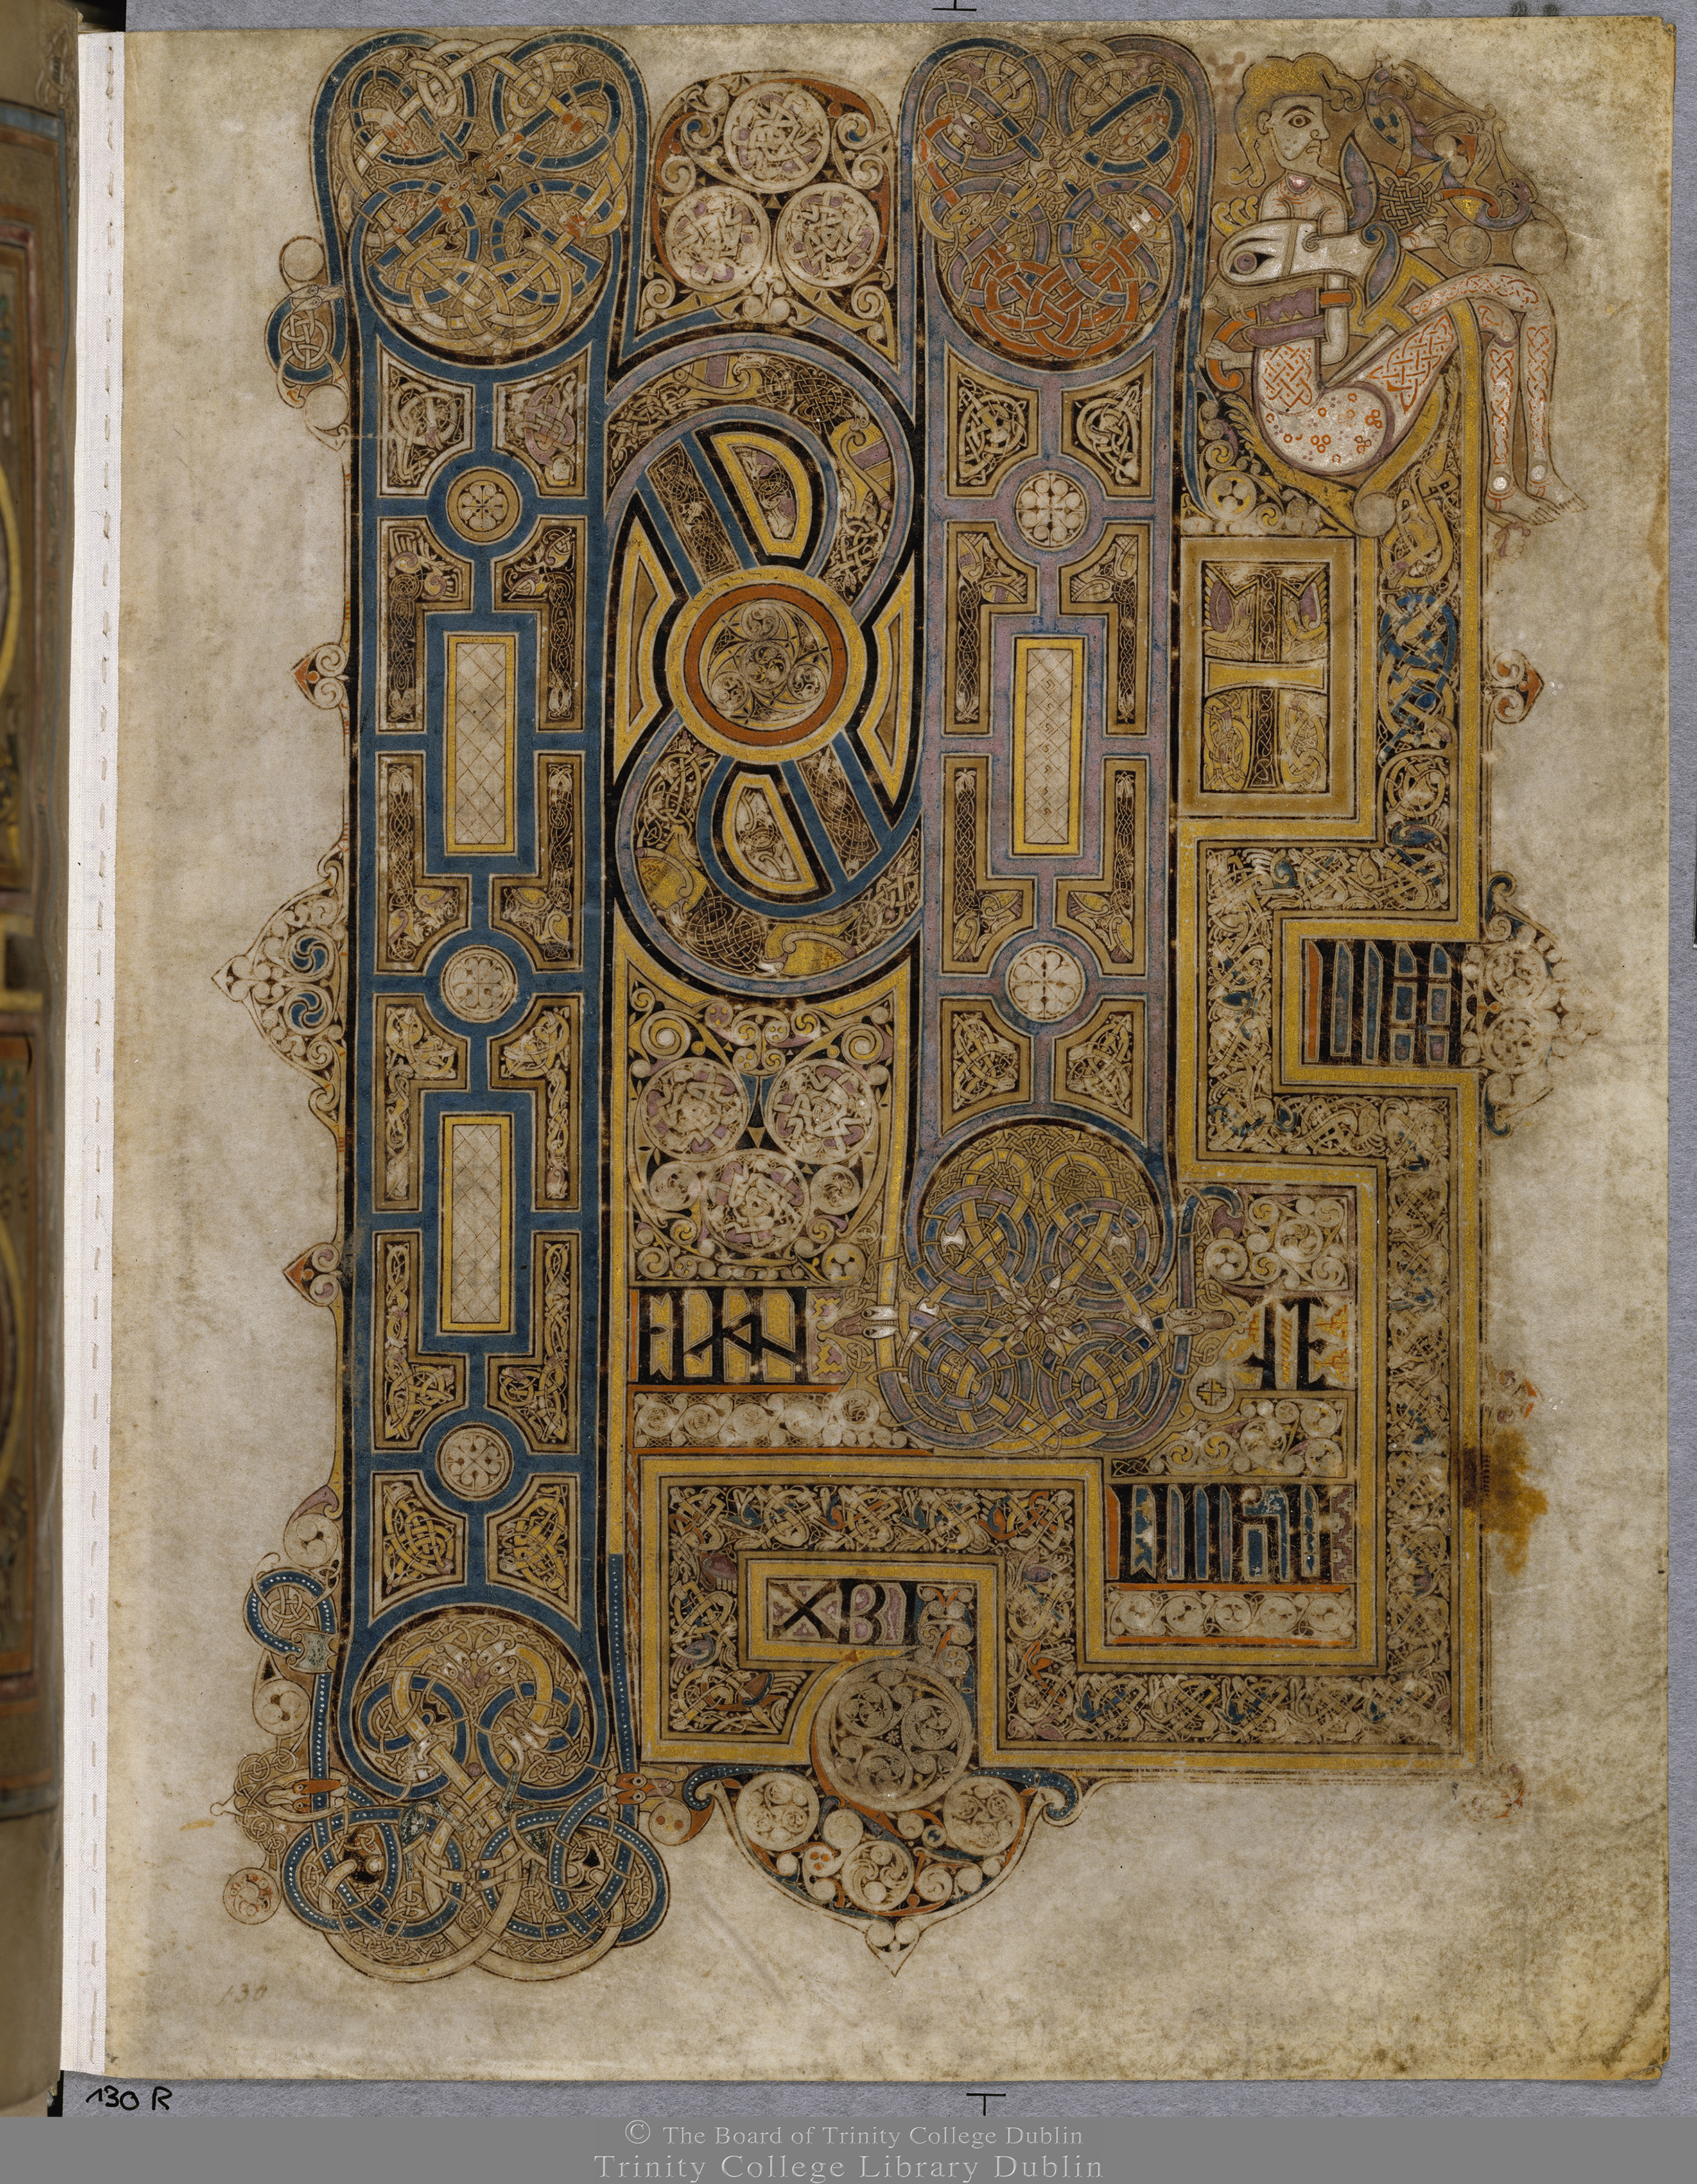 INI T
IUM
EUAN GE
LII IHU
XPI
130
130 R
© The Board of Trinity College Dublin
Trinity College Library Dublin